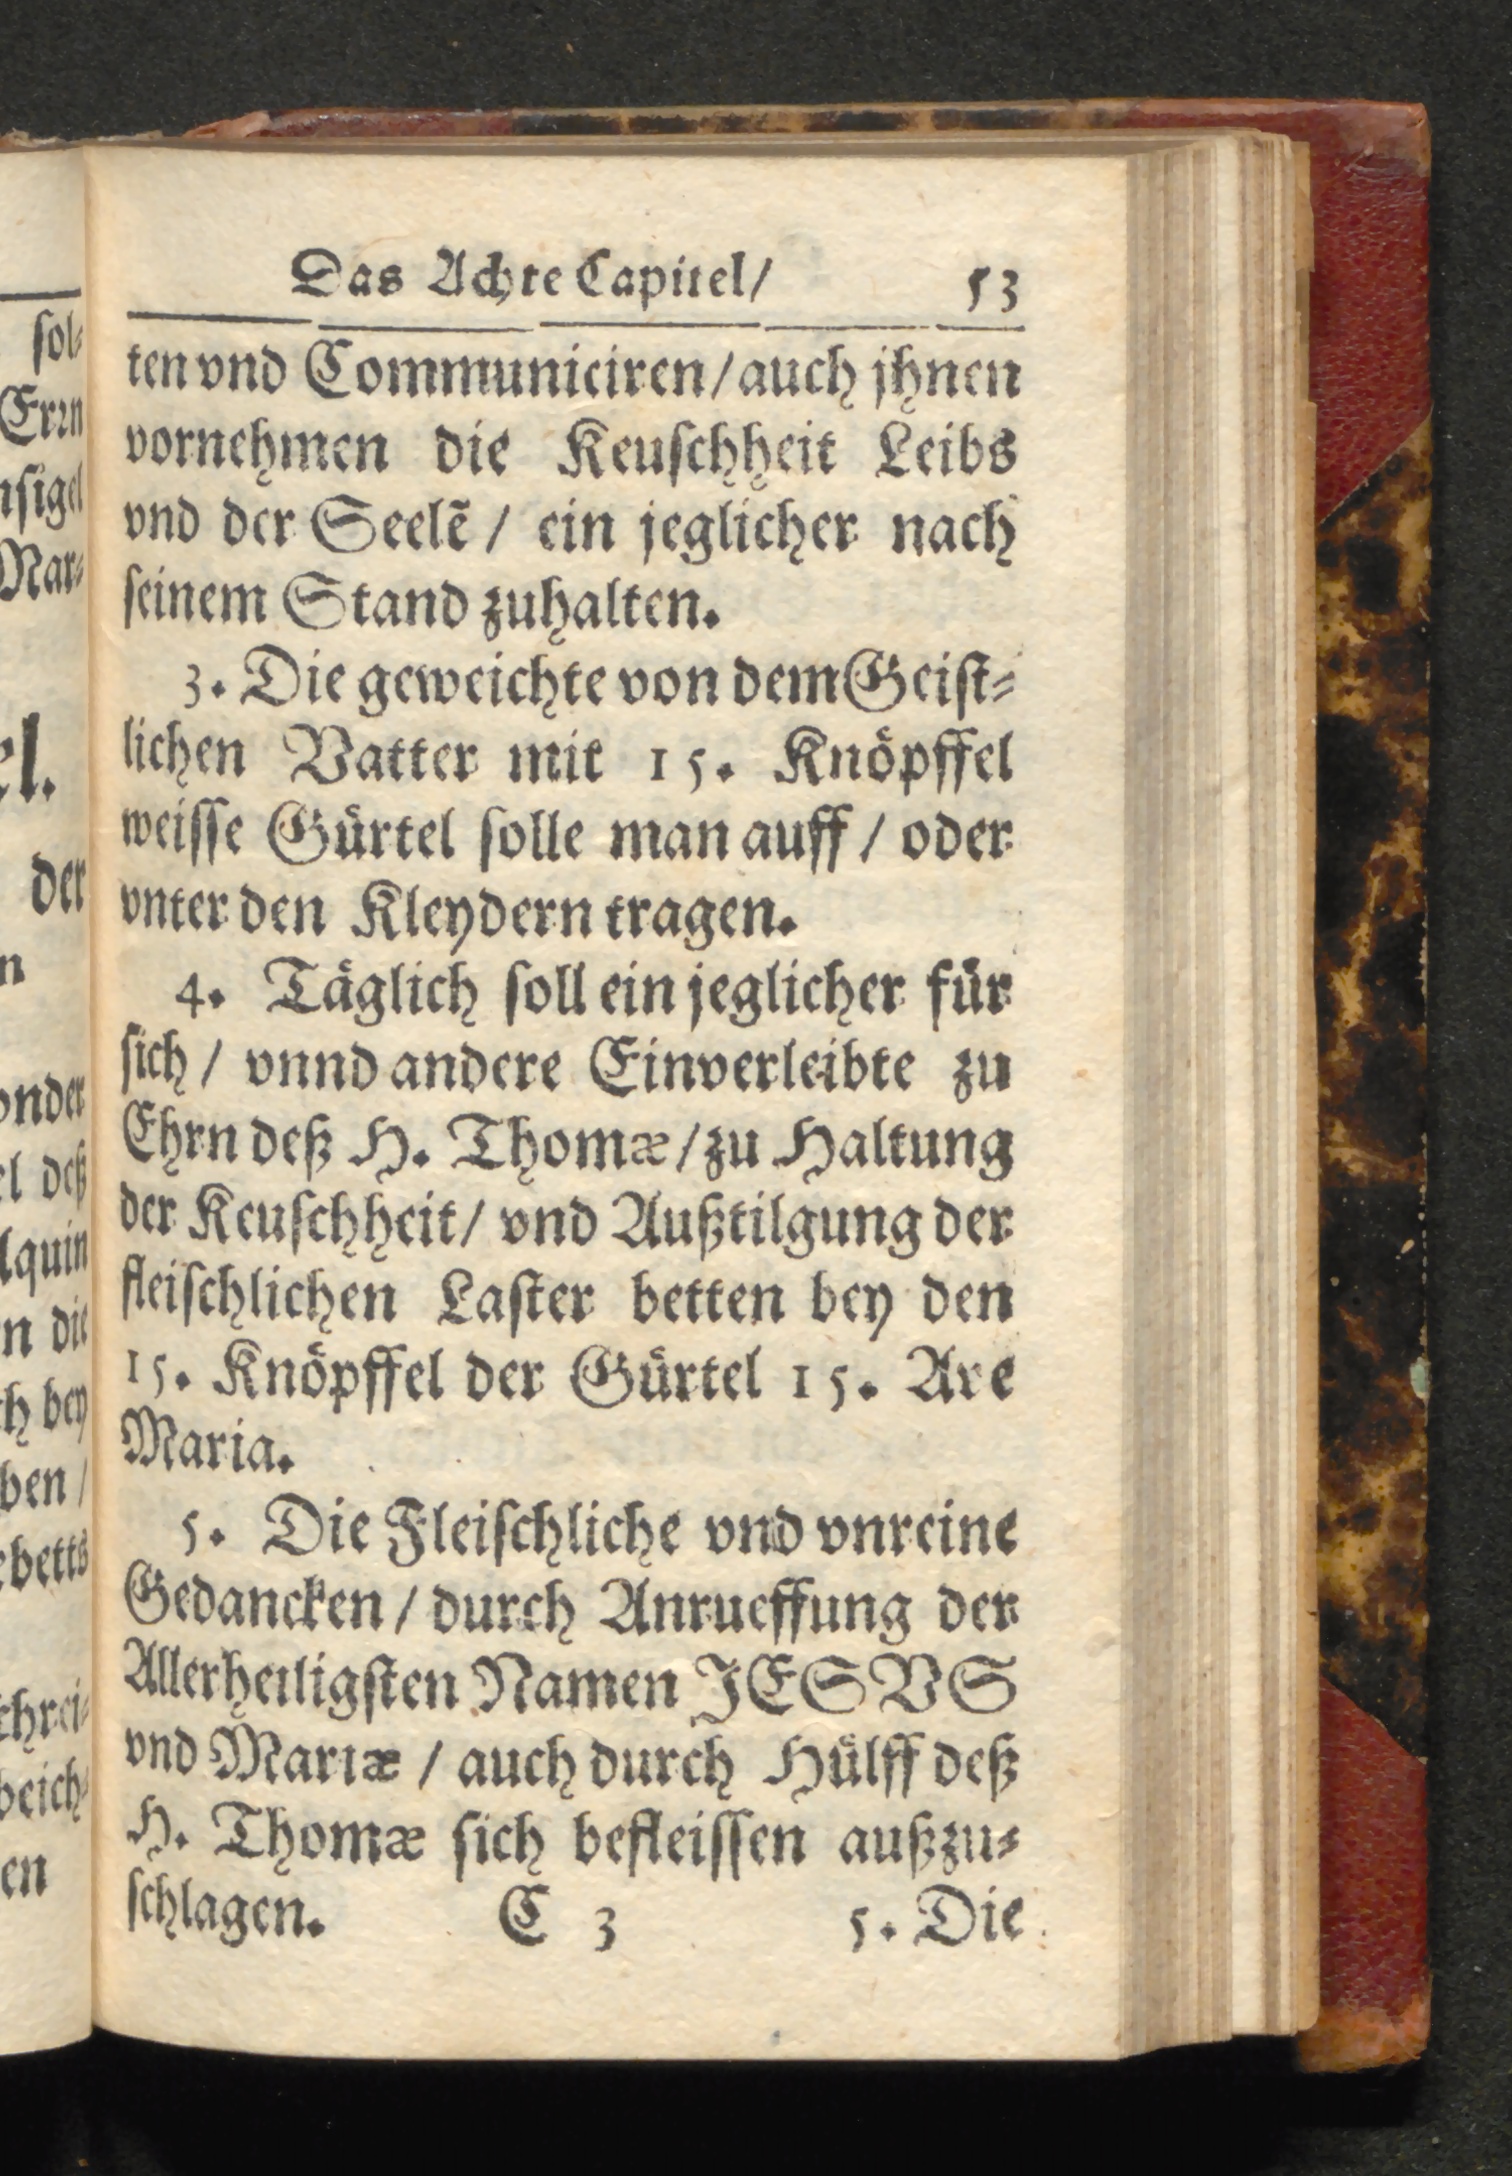 Das Achte Capitel/ 53
ten vnd Communiciren/auch jhnen
vornehmen die Keuschheit Leibs
vnd der Seelẽ / ein jeglicher nach
seinem Stand zuhalten.
3. Die geweichte von dem Geist-
lichen Vatter mit 15. Knöpffel
weisse Gürtel solle man auff / oder
vnter den Kleydern tragen.
4. Täglich soll ein jeglicher für
sich / vnnd andere Einverleibte zu
Ehrn deß H. Thomæ/zu Haltung
der Keuschheit/ vnd Außtilgung der
fleischlichen Laster betten bey den
15. Knöpffel der Gürtel 15. Ave
Maria.
5. Die Fleischliche vnd vnreine
Gedancken / durch Anrueffung der
Allerheiligsten Namen JESVS
vnd Mariæ / auch durch Hülff deß
H. Thomæ sich befleissen außzu-
schlagen. C 3 5. Die